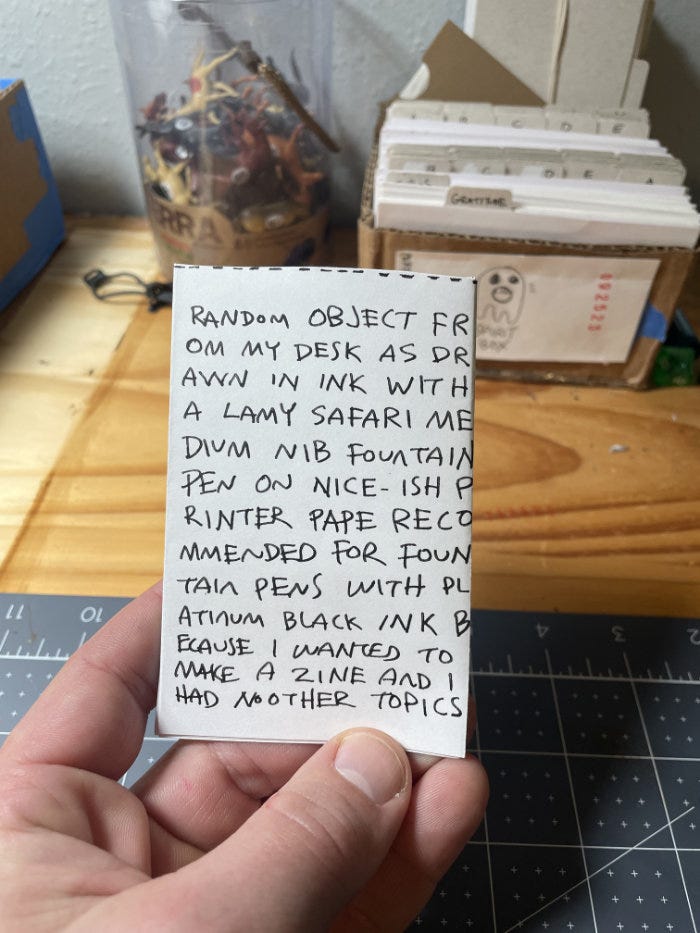 A B C D E
D E A
GRATITUDE
ERRA
092525
SPIRIT
BOX
RANDOM OBJECT FR
OM MY DESK AS DR
AWN IN INK WITH
A LAMY SAFARI ME
DIUM NIB FOUNTAIN
PEN ON NICE-ISH P
RINTER PAPE RECO
MMENDED FOR FOUN
TAIN PENS WITH PL
ATINUM BLACK INK B
ECAUSE I WANTED TO
MAKE A ZINE AND I
HAD NO OTHER TOPICS
11 10 4 3 2